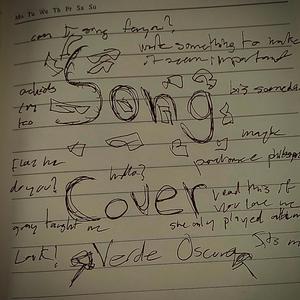 Mo Tu We Th Fr Sa Su
can I song for you?
write something to make
it seem important
Song
artists
try
too
big someday
maybe
do you?
hello?
Cover
read this if
you love me
gray taught me
she only played album
Look!
Verde Oscuro